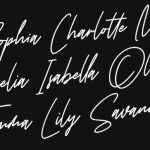 Sophia Charlotte M
elia Isabella Ol
Emma Lily Savann